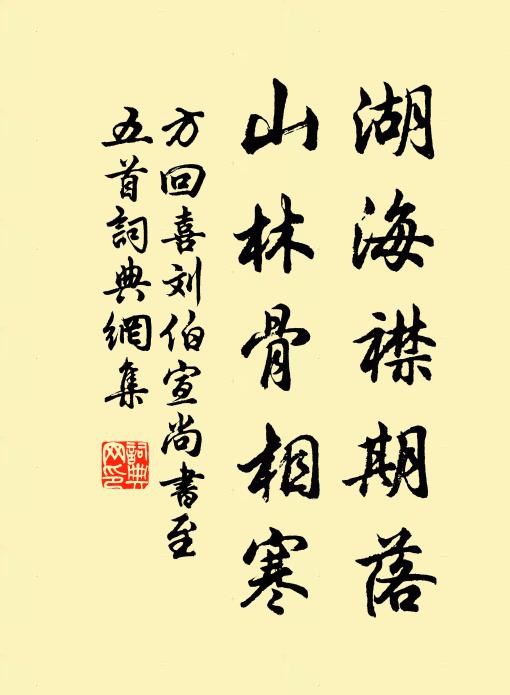 湖海襟期落
山林骨相寒
方回喜刘伯宣尚書至
五首詞典網集
詞典
网印